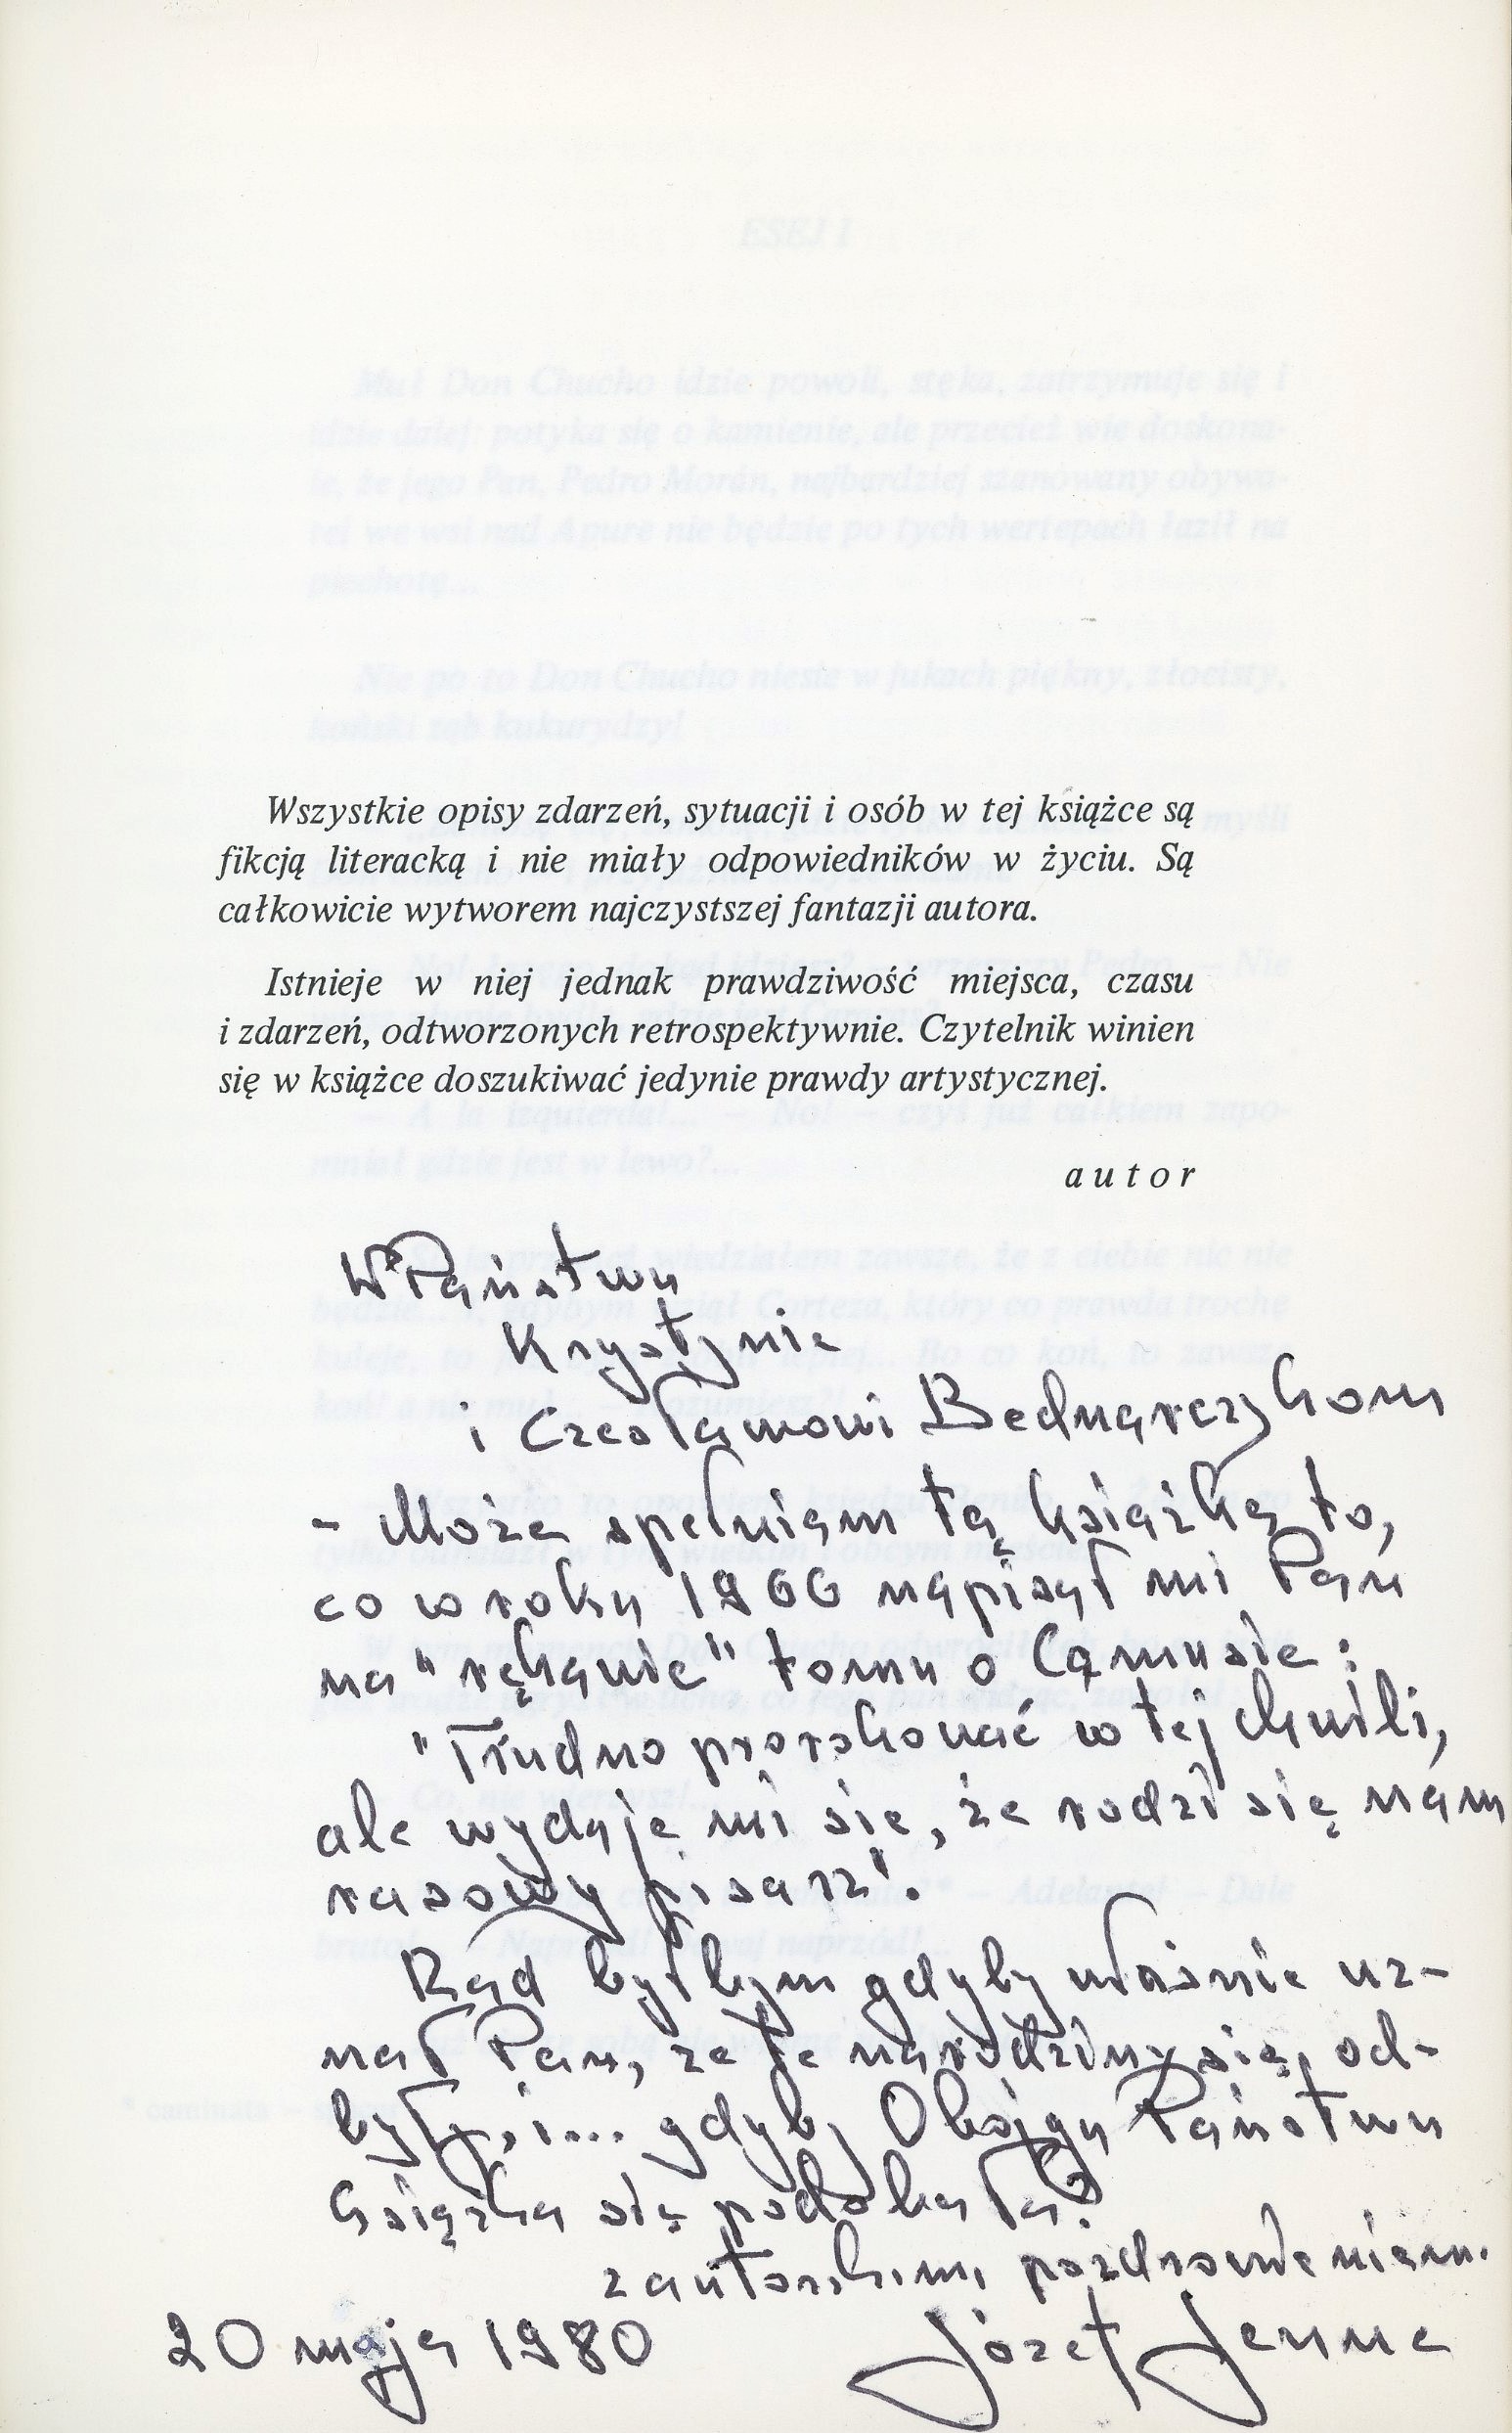 Wszystkie opisy zdarzeń, sytuacji i osób w tej książce są
fikcją literacką i nie miały odpowiedników w życiu. Są
całkowicie wytworem najczystszej fantazji autora.
Istnieje w niej jednak prawdziwość miejsca, czasu
i zdarzeń, odtworzonych retrospektywnie. Czytelnik winien
się w książce doszukiwać jedynie prawdy artystycznej.
autor
W Państwu
Krystynie
i Czesławowi Bednarczykom
- Może spełniam tą książką to,
co w roku 1966 napisał mi Pan
na "rękawie" tomu o Camusie:
"Trudno prorokować w tej chwili,
ale wydaje mi się, że rodzi się nam
rasowy pisarz".
Rad byłbym gdyby właśnie uz-
nał Pan, że te narodziny się od-
były, i... gdyby Obojgu Państwu
książka się podobała?
z autorskim pozdrowieniem.
20 maja 1980 Józef Jenne